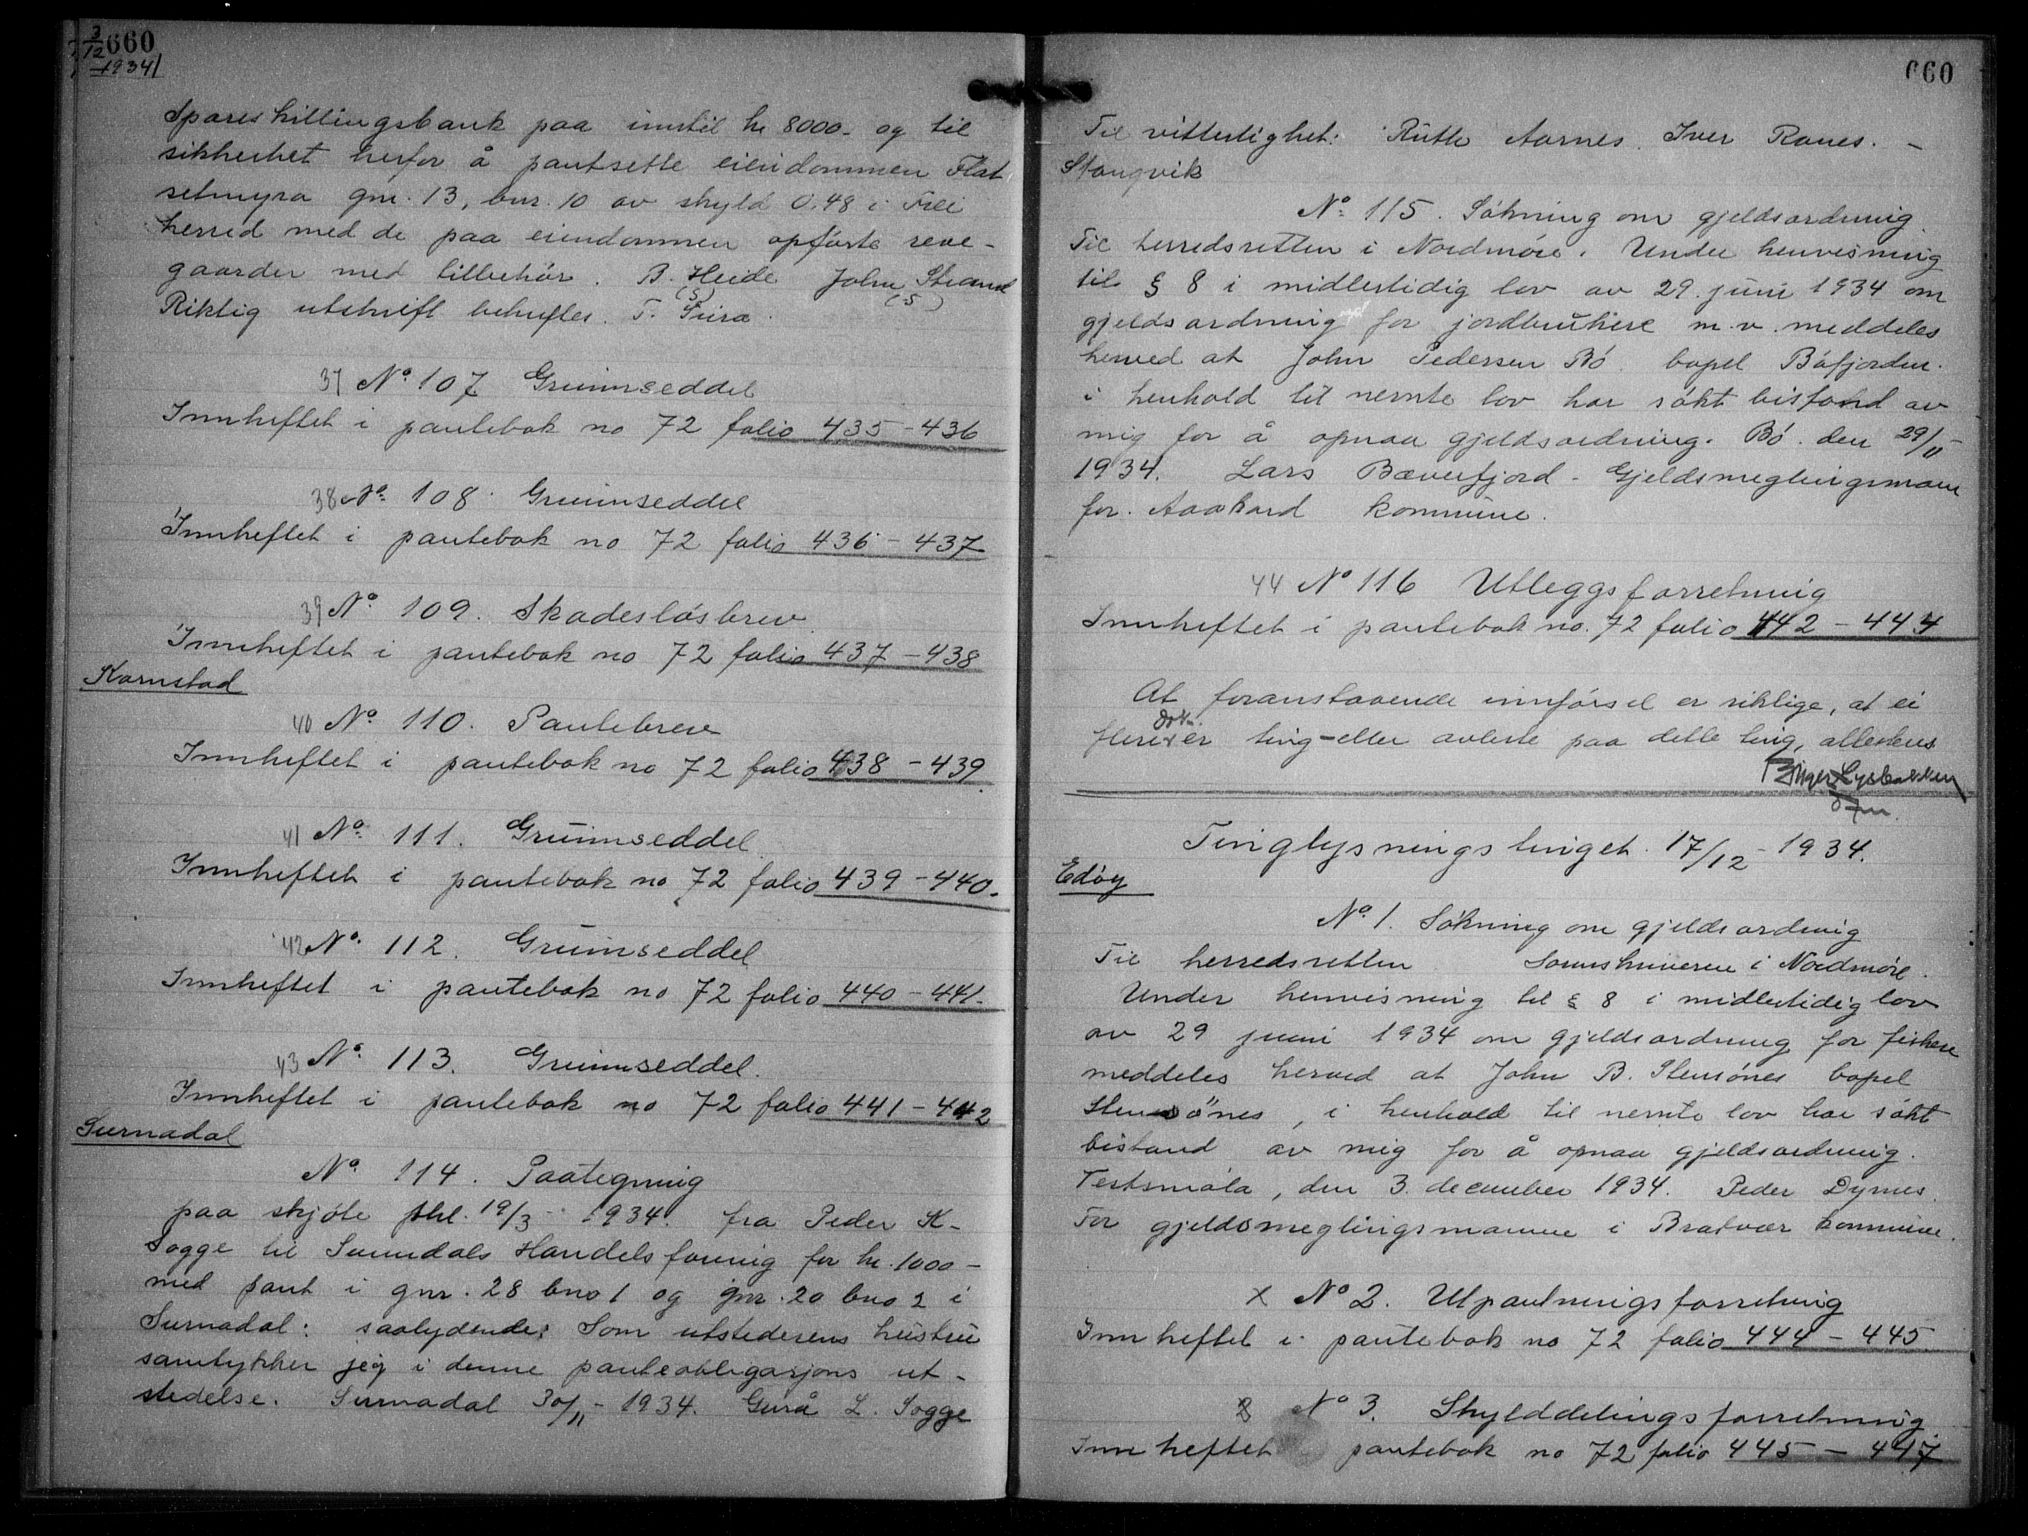 3/12 660
1934
Spareskillingsbank paa inntil kr 8000- og til
sikkerhet herfor å pantsette eiendommen Flat
setmyra gnr. 13, bnr. 10 av skyld 0.48 i Frei
herred med de paa eiendommen opførte reve-
gaarder med tilbehör. B. Heide John Strand
(S) (S)
Riktig utskrift bekreftes. T. Sira.
37 No 107 Grunnseddel
Innheftet i pantebok no 72 folio 435-436
38 No 108 Grunnseddel
Innheftet i pantebok no 72 folio 436-437
39 No 109. Skadeslösbrev
Innheftet i pantebok no 72 folio 437-438
Kornstad
40 No 110. Pantebrev
Innheftet i pantebok no 72 folio 438-439
41 No 111. Grunnseddel
Innheftet i pantebok no 72 folio 439-440.
42 No 112. Grunnseddel
Innheftet i pantebok no 72 folio 440-441.
43 No 113. Grunnseddel.
Innheftet i pantebok no 72 folio 441-442
Surnadal
No 114. Paategning
paa skjöte thl. 19/3 - 1934. fra Peder K-
Sogge til Surndals Handelsforenig for kr. 1000-
med pant i gnr. 28 bno 1 og gnr. 20 bno 2 i
Surnadal: saalydende: Som utstederens hustru
samtykker jeg i denne panteobligasjons ut-
stedelse. Surnadal 30/11 - 1934. Gurå L. Sogge
660
Til vitterlighet: Ruth Aarnes. Iver Ranes. -
Stangvik
No 115. Sökning om gjeldsordning.
Til herredsretten i Nordmöre. Under henvisning
til § 8 i midlertidig lov av 29. juni 1934 om
gjeldsordning for jordbrukere m.v. meddeles
herved at John Pedersen Bö. bopel Böfjorden.
i henhold til nevnte lov har sökt bistand av
mig for å opnaa gjeldsordning. Bö. den 29/11-
1934. Lars Bæverfjord - Gjeldsmeglingsmann
for. Aasskard kommune.
44 No 116 Utleggsforretning
Innheftet i pantebok no. 72 folio 442-444
At foranstaaende innförsel er riktige, at ei
dok.
flere er ting-eller avleste paa dette ting, attesteres
Birger Lysbakken
Tinglysningstinget. 17/12 - 1934.
Edöy
No 1. Sökning om gjeldsordning
Til herredsretten Sorenskriveren i Nordmöre.
Under henvisning til § 8 i midlertidig lov
av 29 juni 1934 om gjeldsordning for fiskere
meddeles herved at John B. Stensönes bopel
Stensönes, i henhold til nevnte lov har sökt
bistand av mig for å opnaa gjeldsordning.
Veidsmola, den 3. december 1934. Peder Dyrnes.
For gjeldsmeglingsmannen i Bratvær kommune.
x No 2. Utpantningsforretning
Innheftet i pantebok no 72 folio 444-445.
No 3. Skylddelingsforretning
Innheftet pantebok no 72 folio 445-447